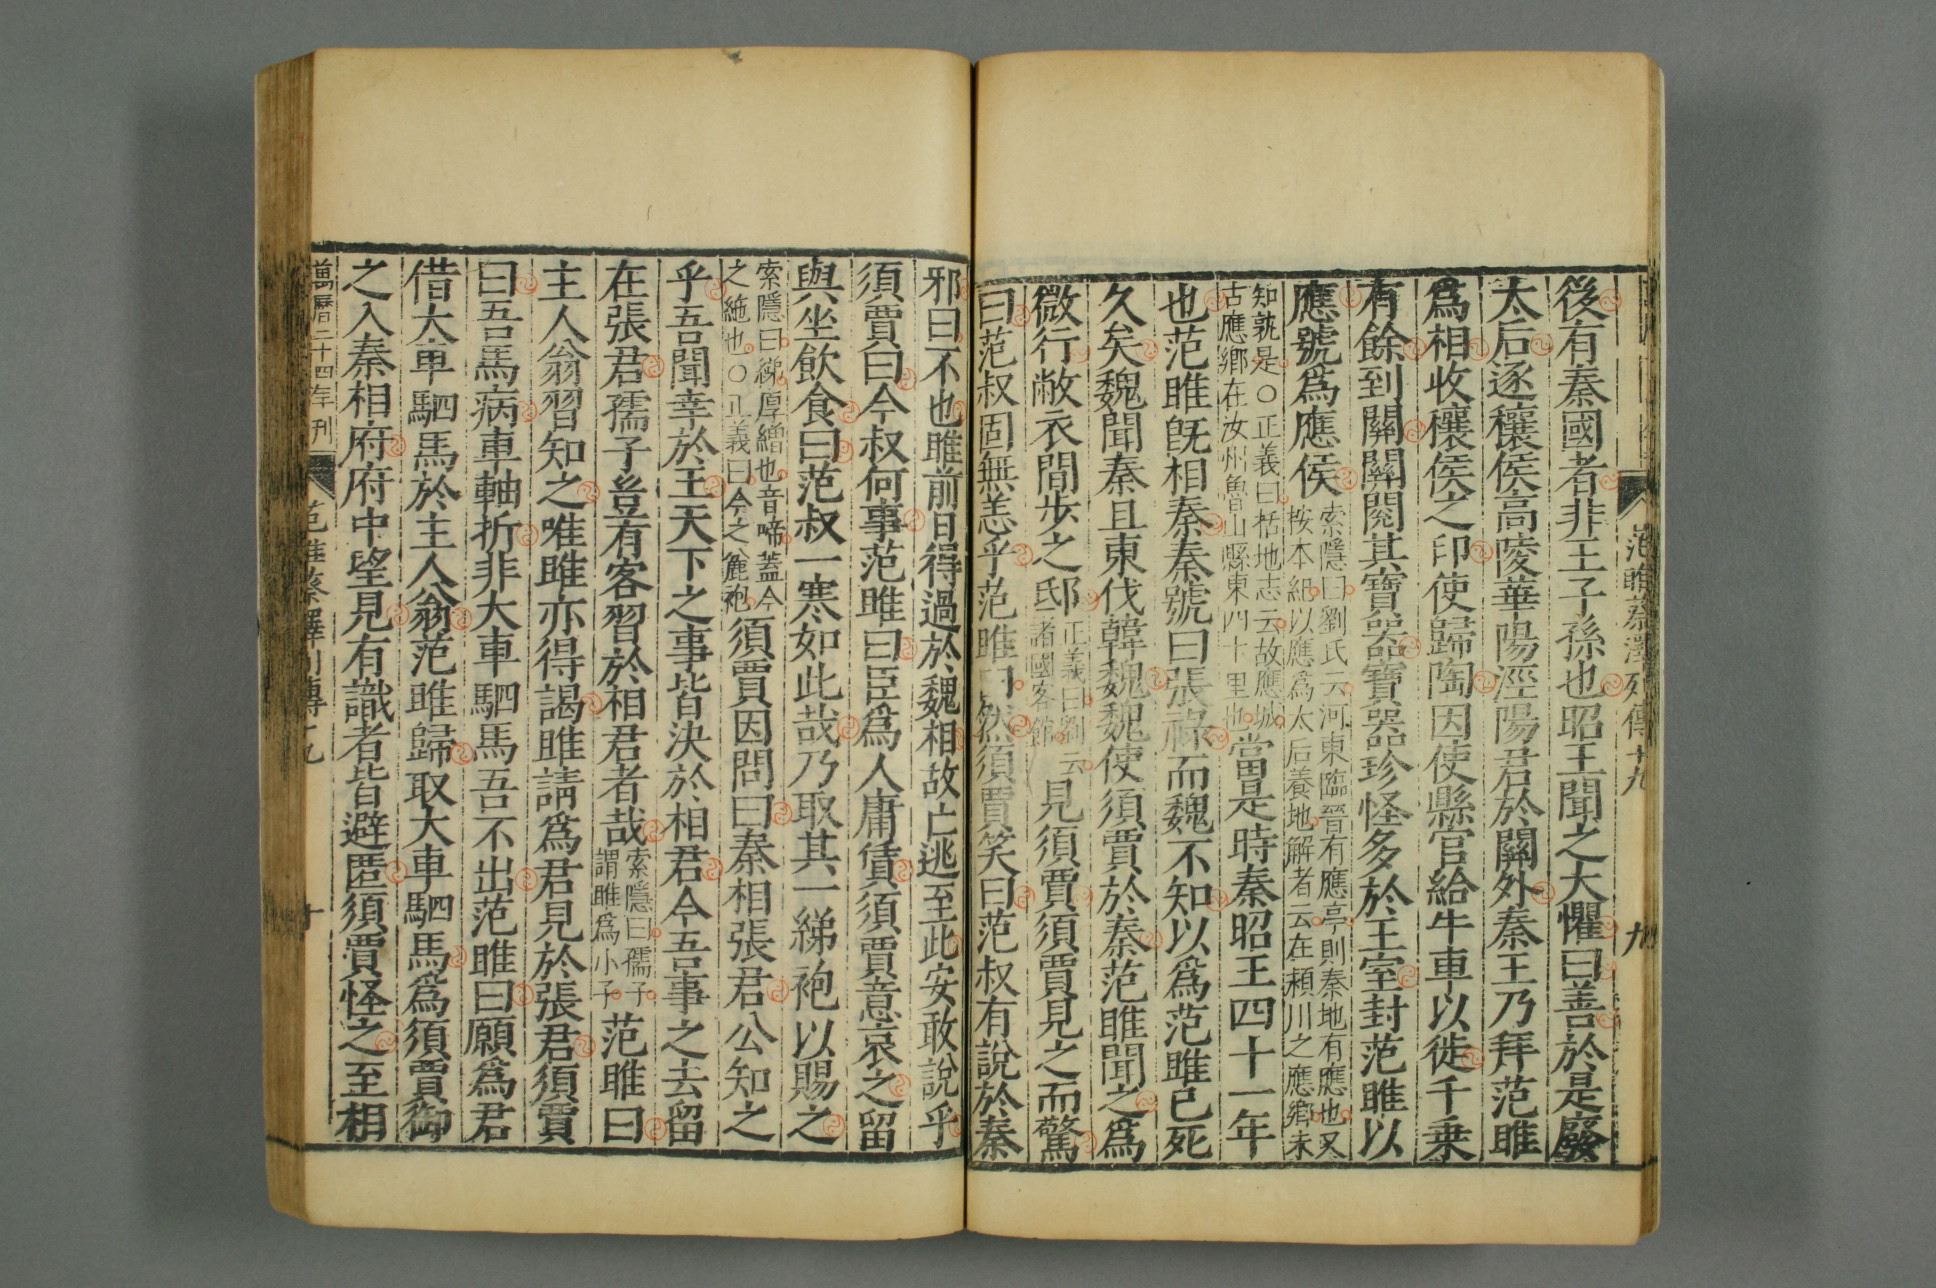 范睢蔡澤列傳十九 九
後有秦國者非王子孫也昭王聞之大懼曰善於是廢
太后逐穰侯高陵華陽涇陽君於關外秦王乃拜范睢
爲相收穰侯之印使歸陶因使縣官給牛車以徙千乗
有餘到關關閱其寶器寶器珍怪多於王室封范睢以
應號爲應侯索隱曰劉氏云河東臨晉有應亭則秦地有應也又
桉本紀以應爲太后養地解者云在穎川之應鄉未
知孰是○正義曰括地志云故應城
古應鄉在汝州魯山縣東四十里也當是時秦昭王四十一年
也范睢旣相秦秦號曰張祿而魏不知以爲范睢已死
久矣魏聞秦且東伐韓魏魏使須賈於秦范睢聞之爲
微行敝衣間步之邸正義曰劉云
諸國客館見須賈須賈見之而驚
曰范叔固無恙乎范睢曰然須賈笑曰范叔有說於秦
邪曰不也睢前日得過於魏相故亡逃至此安敢說乎
須賈曰今叔何事范睢曰臣爲人庸賃須賈意哀之留
與坐飲食曰范叔一寒如此哉乃取其一綈袍以賜之
索隱曰綈厚繒也音啼蓋今
之絁也○正義曰今之麄袍須賈因問曰秦相張君公知之
乎吾聞幸於王天下之事皆決於相君今吾事之去留
在張君孺子豈有客習於相君者哉索隱曰孺子
謂睢爲小子范睢曰
主人翁習知之唯睢亦得謁睢請爲君見於張君須賈
曰吾馬病車軸折非大車駟馬吾不出范睢曰願爲君
借大車駟馬於主人翁范睢歸取大車駟馬爲須賈御
之入秦相府府中望見有識者皆避匿須賈怪之至相
萬曆二十四年刊 范睢蔡澤列傳十九 十